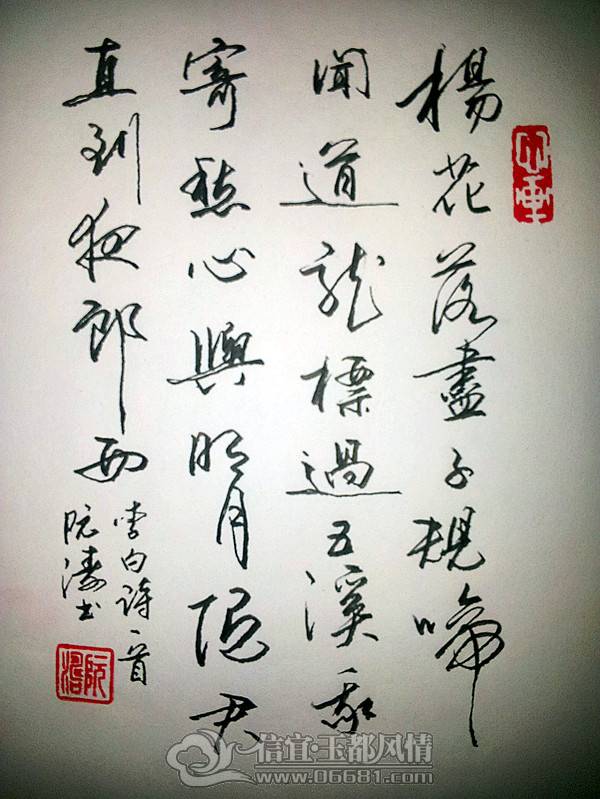 楊花落盡子規啼
聞道龍標過五溪我
寄愁心與明月隨君
直到夜郎西
李白詩一首
阮濤书
信宜·玉都风情
www.06681.com